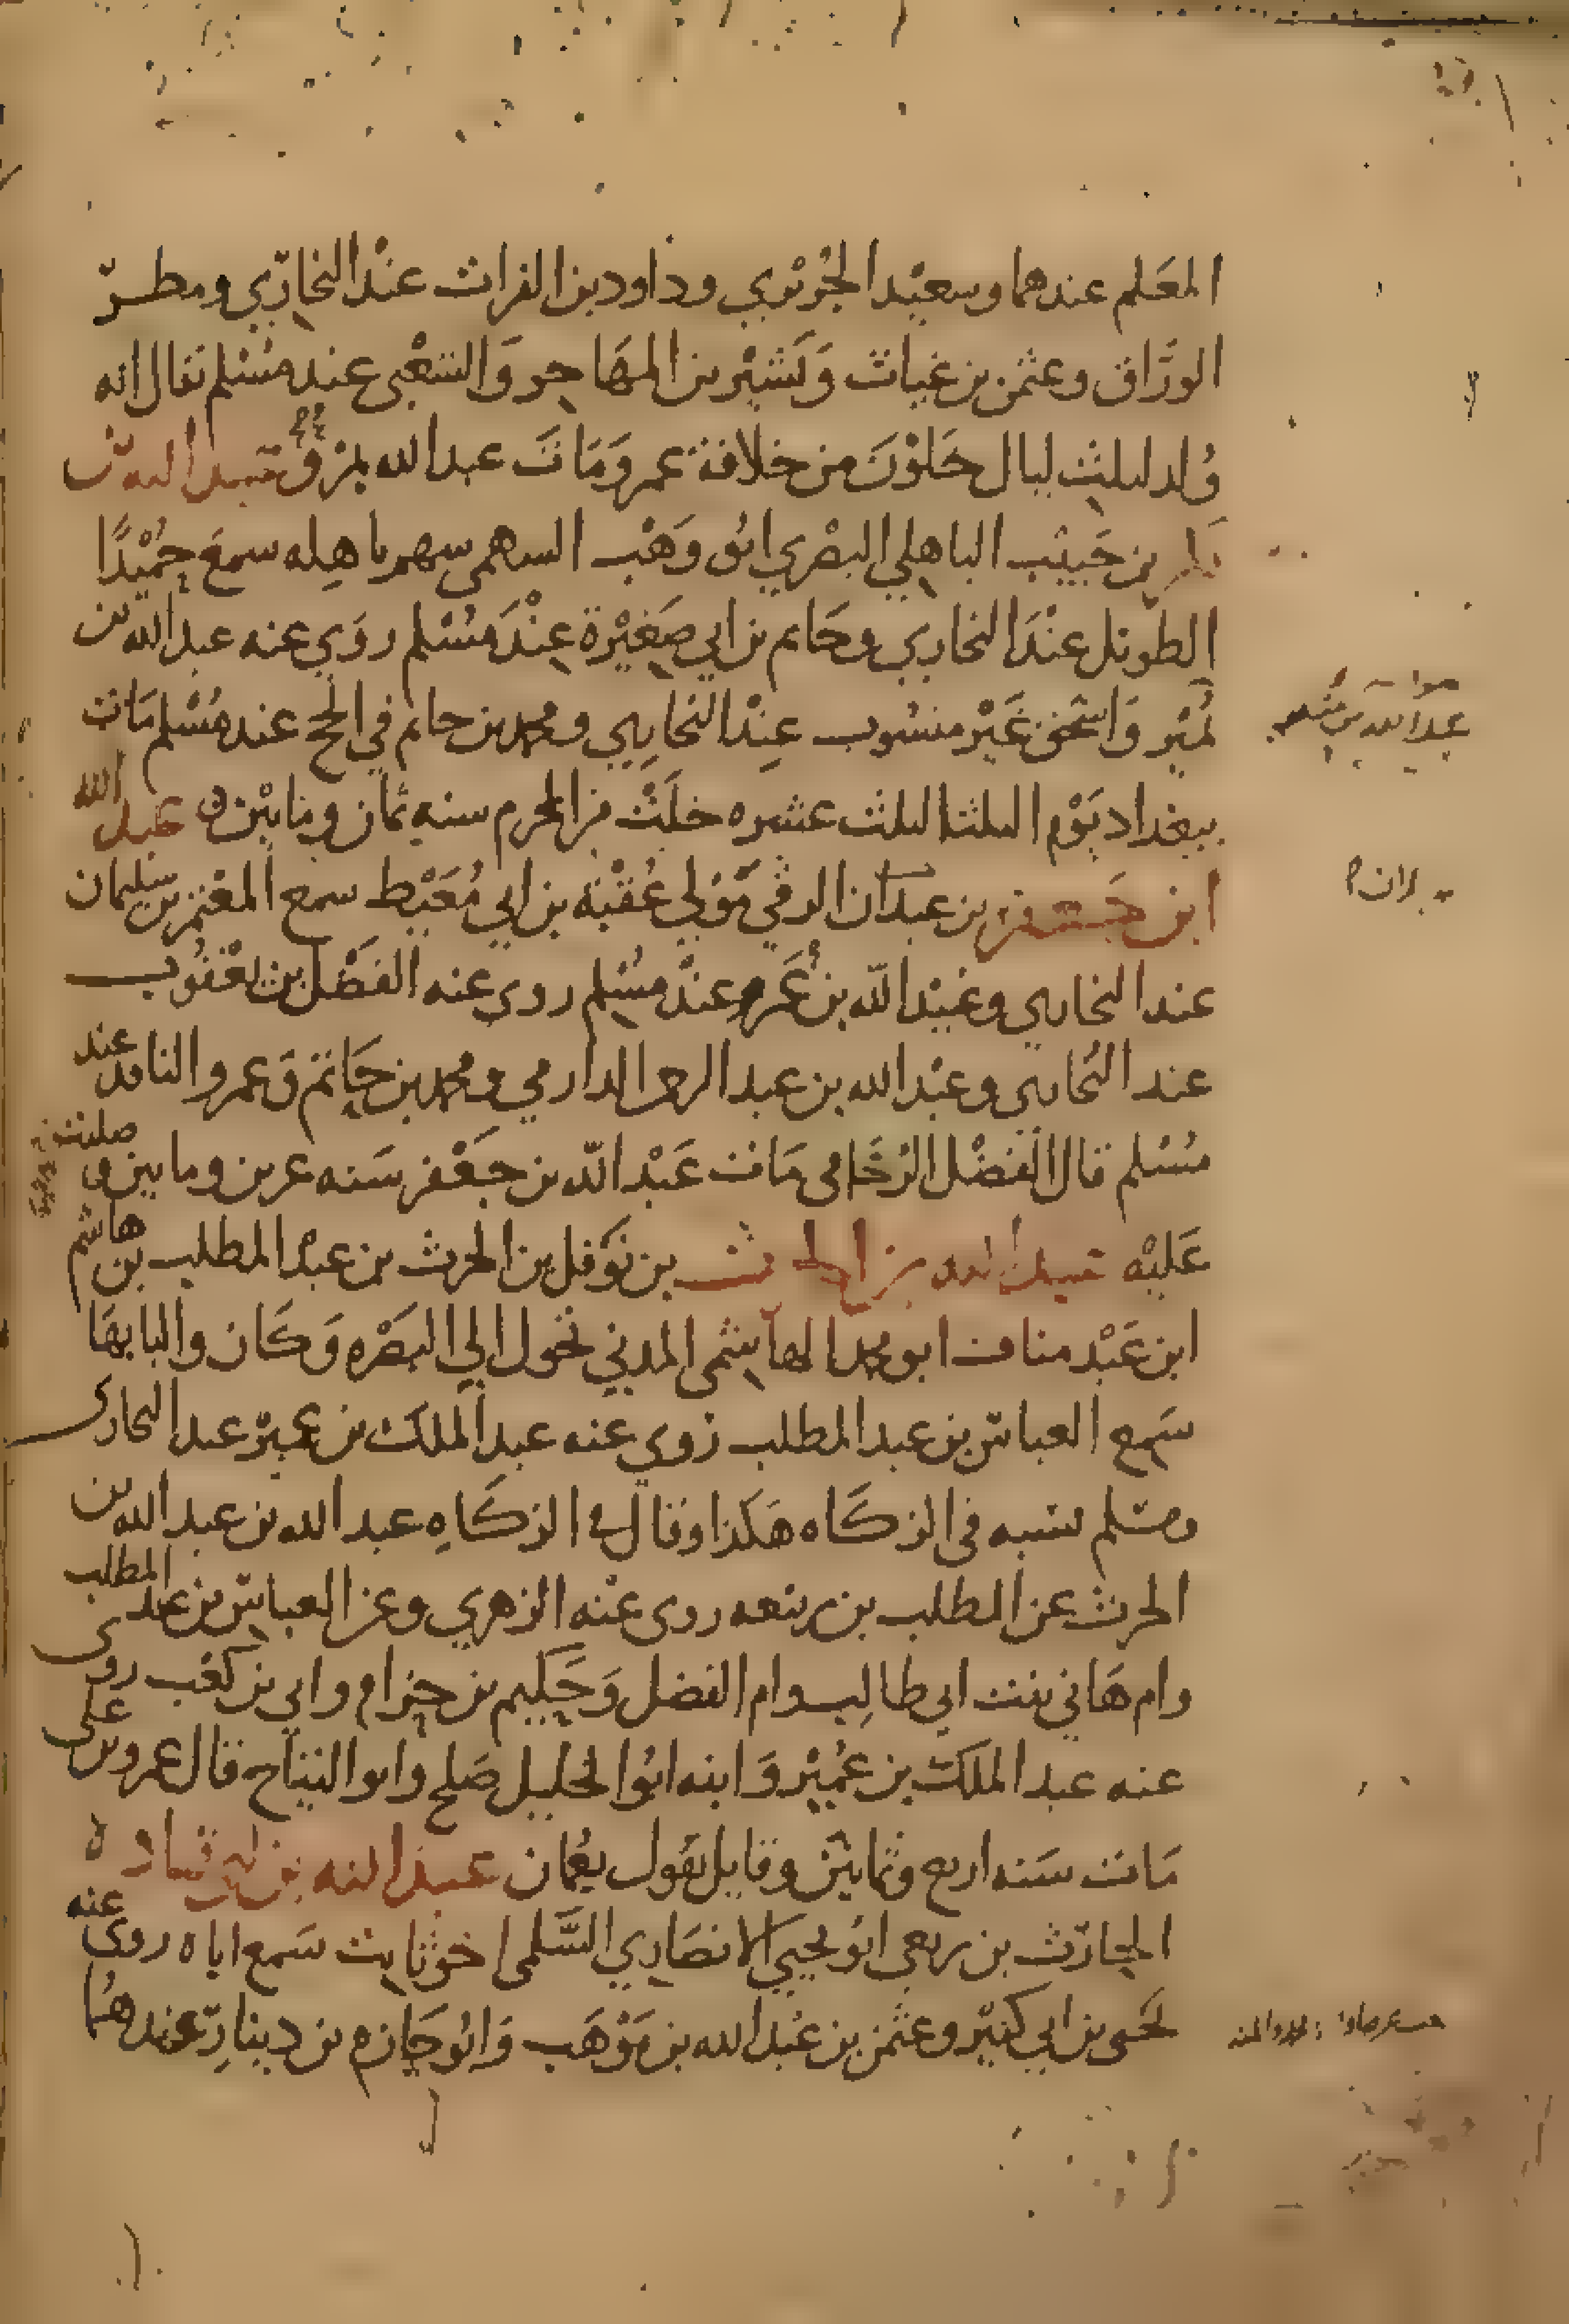 المعَلم عندهما وسعيْد الجُرَيْري وداود بن الفرات عنْد البخاري ومطر
الورَّاق وعثمن بن غياث وَبَشيْر بن المهَاجر وَالشعْبي عند مسْلم يقال انه
وُلد لثلث ليال خلَوْنَ من خلافة عمر وَمَاتَ عبد الله بمرْو عبد الله بن
بكر بن حَبيْب الباهلي البصْري ابُو وَهْب السهمي سهم باهِله سمعَ حُمَيْدًا
الطويل عنْدَ البخاري وحَاتم بن ابي صَغيْرة عِنْدَ مسْلم روَي عنه عبد الله بن
مُنيْر وَاسْحق غَيْر منسُوب عِنْد البخاري ومحمد بن حاتم في الحج عند مسْلم مَات
ببغداد يَوْم الثلثا لثلث عشره خلَتْ من المحرم سنه ثمان ومايتيْن عبد الله
ابن جَعْفر بن عبدان الرقي مَوْلي عُقْبَه بن ابي مُعَيْط سمع المعْتمر بن سليمان
عند البخاري وعُبيْد الله بن عَمرو عنْدَ مسْلم روي عنه الفَضْل بن يعْقُوب
عند البُخاري وعبْد الله بن عبد الرحمن الدارمي ومحمد بن حَاتم وعمرو الناقد عند
مسْلم قال الفضْل الرُّخَامي مَات عَبْد الله بن جعْفر سَنه عشرين ومايتين
عَليْه عبد الله بن الحارث بن نَوْفل بن الحرث بن عبْد المطلب بن هاشم
ابن عَبْد مناف ابو محمد الهاشمي المدني تحول الي البَصْره وَكَان واليا بهَا
سَمع العباس بن عبد المطلب رَوي عنه عبد الملك بن عميْر عند البخاري
ومسْلم نسبه في الزكَاه هَكذا وقال في الزكَاهِ عبد الله بن عبد الله بن
الحرث عن المطلب بن ربيعه روي عنْه الزهري وعن العباس بن عبد المطلب
وام هَاني بنت ابي طالِب وام الفضل وَحَكيم بن حِزام وابي بن كعْب روي
عنه عبد الملك بن عُميْر وَابنه ابُوا الخليل صَلح وابو التياح قال عمرو بن علي
مَات سَنه اربع وثمانيْن وقايل يقول بعُمان عبد الله بن ابي قتاده
الحارث بن ربعي ابُو يحيي الانصَاري السَّلمي اخو ثابت سَمع اباه روي عنه
يحْيي بن ابي كثيْر وعثمن بن عبْد الله بن مَوْهَب وَابُو حَازم بن دينار عندهُمَا